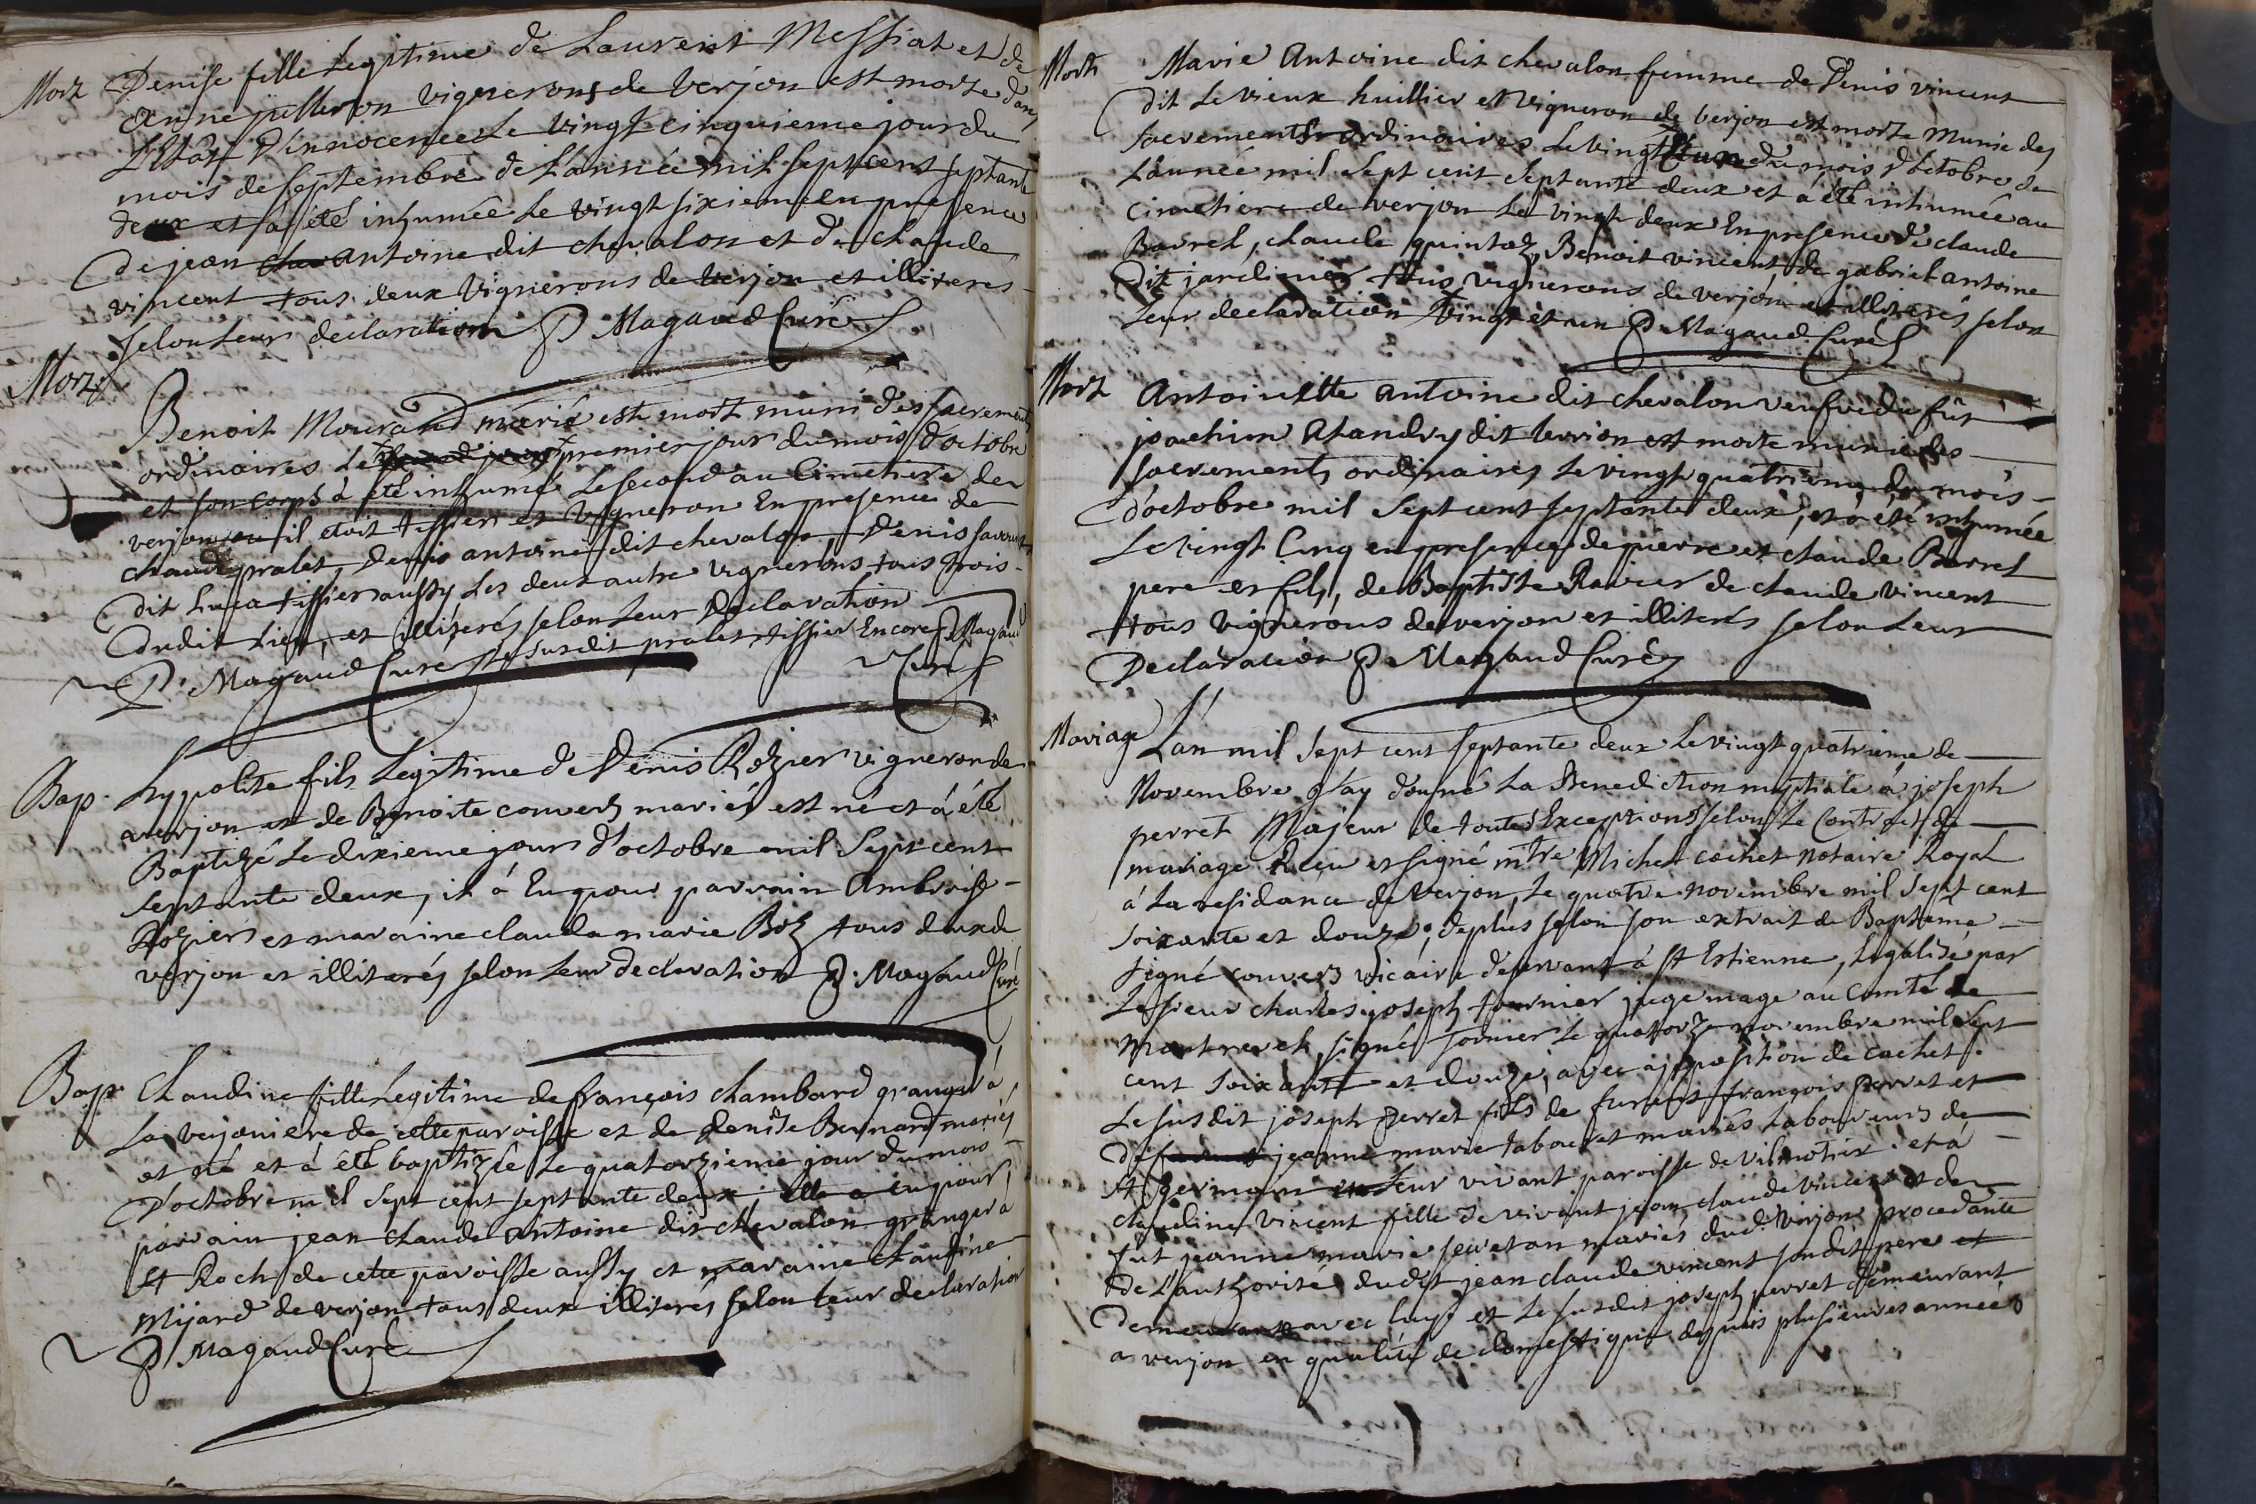 Mort Denise fille Legitime de Laurent Messiat et de
Anne juilleron vignerons de verjon est morte dans
L'Etat d'innocence Le vingt cinquieme jour du
mois de septembre de L'année mil sept cent septante
deux et a été inhumée Le vingt sixieme en presence
de jean antoine dit chevalon et de claude
vincent tous deux vignerons de verjon et illiteres
selon leur declaration P Magaud Curé
Mort
Benoit Mourand marié est mort muni des sacrements
ordinaires Le premier jour du mois d'octobre
et son corps à été inhumé Le second au Cimetiere de
verjon il etoit tissier et vigneron En presence de
claude pralet, Denis antoine dit chevalon, Denis
dit Luca tissier aussy Les deux autre vignerons tous trois
dudit Lieu, et illiterés selon Leur Declaration
P. Magaud Curé Le susdit pralet tissier Encore P Magaud
Curé
Bap. hypolite fils Legitime de Denis Rozier vigneron de
verjon et de Benoite convers mariés est né et à été
Baptizé Le dixieme jour d'octobre mil Sept cent
septante deux, il à Eu pour parrain Ambroise
Rozier et maraine clauda marie Boz tous deux de
verjon et illiterés selon Leur declaration P. Magaud Curé
Bap. Claudine fille Legitime de françois chambard granger à
La verjoniere de cette paroisse et de denise Bernard mariés
et né et à êté baptizée Le quatorzieme jour du mois
D'octobre mil sept cent septante deux elle a eu pour
parain jean claude antoine dit chevalon granger a
St Roch de cette paroisse aussy et maraine claudine
Mijard de verjon tous deux illiterés selon leur declaration
P Magaud Curé
Mort Marie Antoine dit chevalon femme de Denis vincent
dit Le vieux huillier et vigneron de verjon est morte munie des
sacrements ordinaires Le vingt du mois d'octobre de
L'année mil sept cent septante deux et a été inhumée au
cimetiere de verjon Le vingt deux En presence de claude
Barrel, claude quintoz, Benoit vincent de gabriel antoine
dit jardinier tous vignerons de verjon et illiterés selon
Leur declaration vingt et un P Magaud Curé
Mort Antoinette antoine dit chevalon veufve du fût
joachim Alandry dit berrion est morte munie des
sacrements ordinaires Le vingt quatrieme du mois
d'octobre mil sept cent septante deux, et a été inhumée
Le vingt Cinq en presence de pierre et claude Barrel
pere et fils, de Baptiste Ravier de claude vincent
tous vignerons de verjon et illiterés selon Leur
Declaration P Magaud Curé
Mariage L'an mil sept cent septante deux Le vingt quatrieme de
Novembre J'ay donné La Benediction nuptiale à joseph
perret Majeur de toutes Exceptions selon Le Contract de
mariage Reçu et signé mtre Michel cochet notaire Royal
à La residance de Verjon, Le quatre novembre mil sept cent
soixante et douze; deplus selon son extrait de Baptême
signé convers vicaire deservant à St Estienne, Legalisé par
Le sieur charles joseph tournier juge mage au Comté de
Montrevel, signé Tornier Le quatorze novembre mil sept
cent soixante et douze, avec apposition de cachet.
Le susdit joseph perret fils de furent françois perret et
de jeanne marie tabouret mariés Laboureurs de
St germain en Leur vivant paroisse de vilmotrix. et à
claudine vincent fille de vivant jean claude vincent et de
fut jeanne marie secretan mariés dud. Verjon procedante
de L'authorité dudit jean claude vincent son dit pere et
demeurant avec luy, et Le susdit joseph perret demeurant
a verjon en qualité de domestique depuis plusieures années